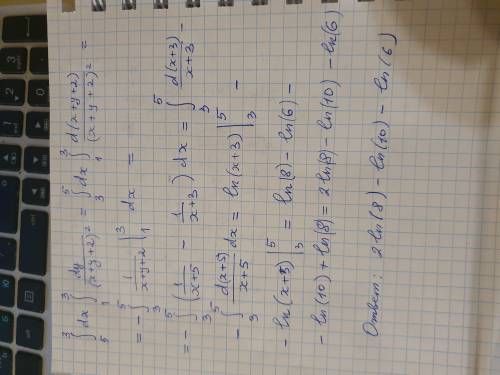 ∫₅³ dx ∫₁³ dy/(x+y+2)² = ∫₃⁵ dx ∫₁³ d(x+y+2)/(x+y+2)² =
= -∫₃⁵ 1/(x+y+2) |₁³ dx =
= -∫₃⁵ (1/(x+5) - 1/(x+3)) dx = ∫₃⁵ d(x+3)/(x+3) -
- ∫₃⁵ d(x+5)/(x+5) dx = ln(x+3) |₃⁵ -
- ln(x+5) |₃⁵ = ln(8) - ln(6) -
- ln(10) + ln(8) = 2ln(8) - ln(10) - ln(6)
Ответ: 2ln(8) - ln(10) - ln(6)